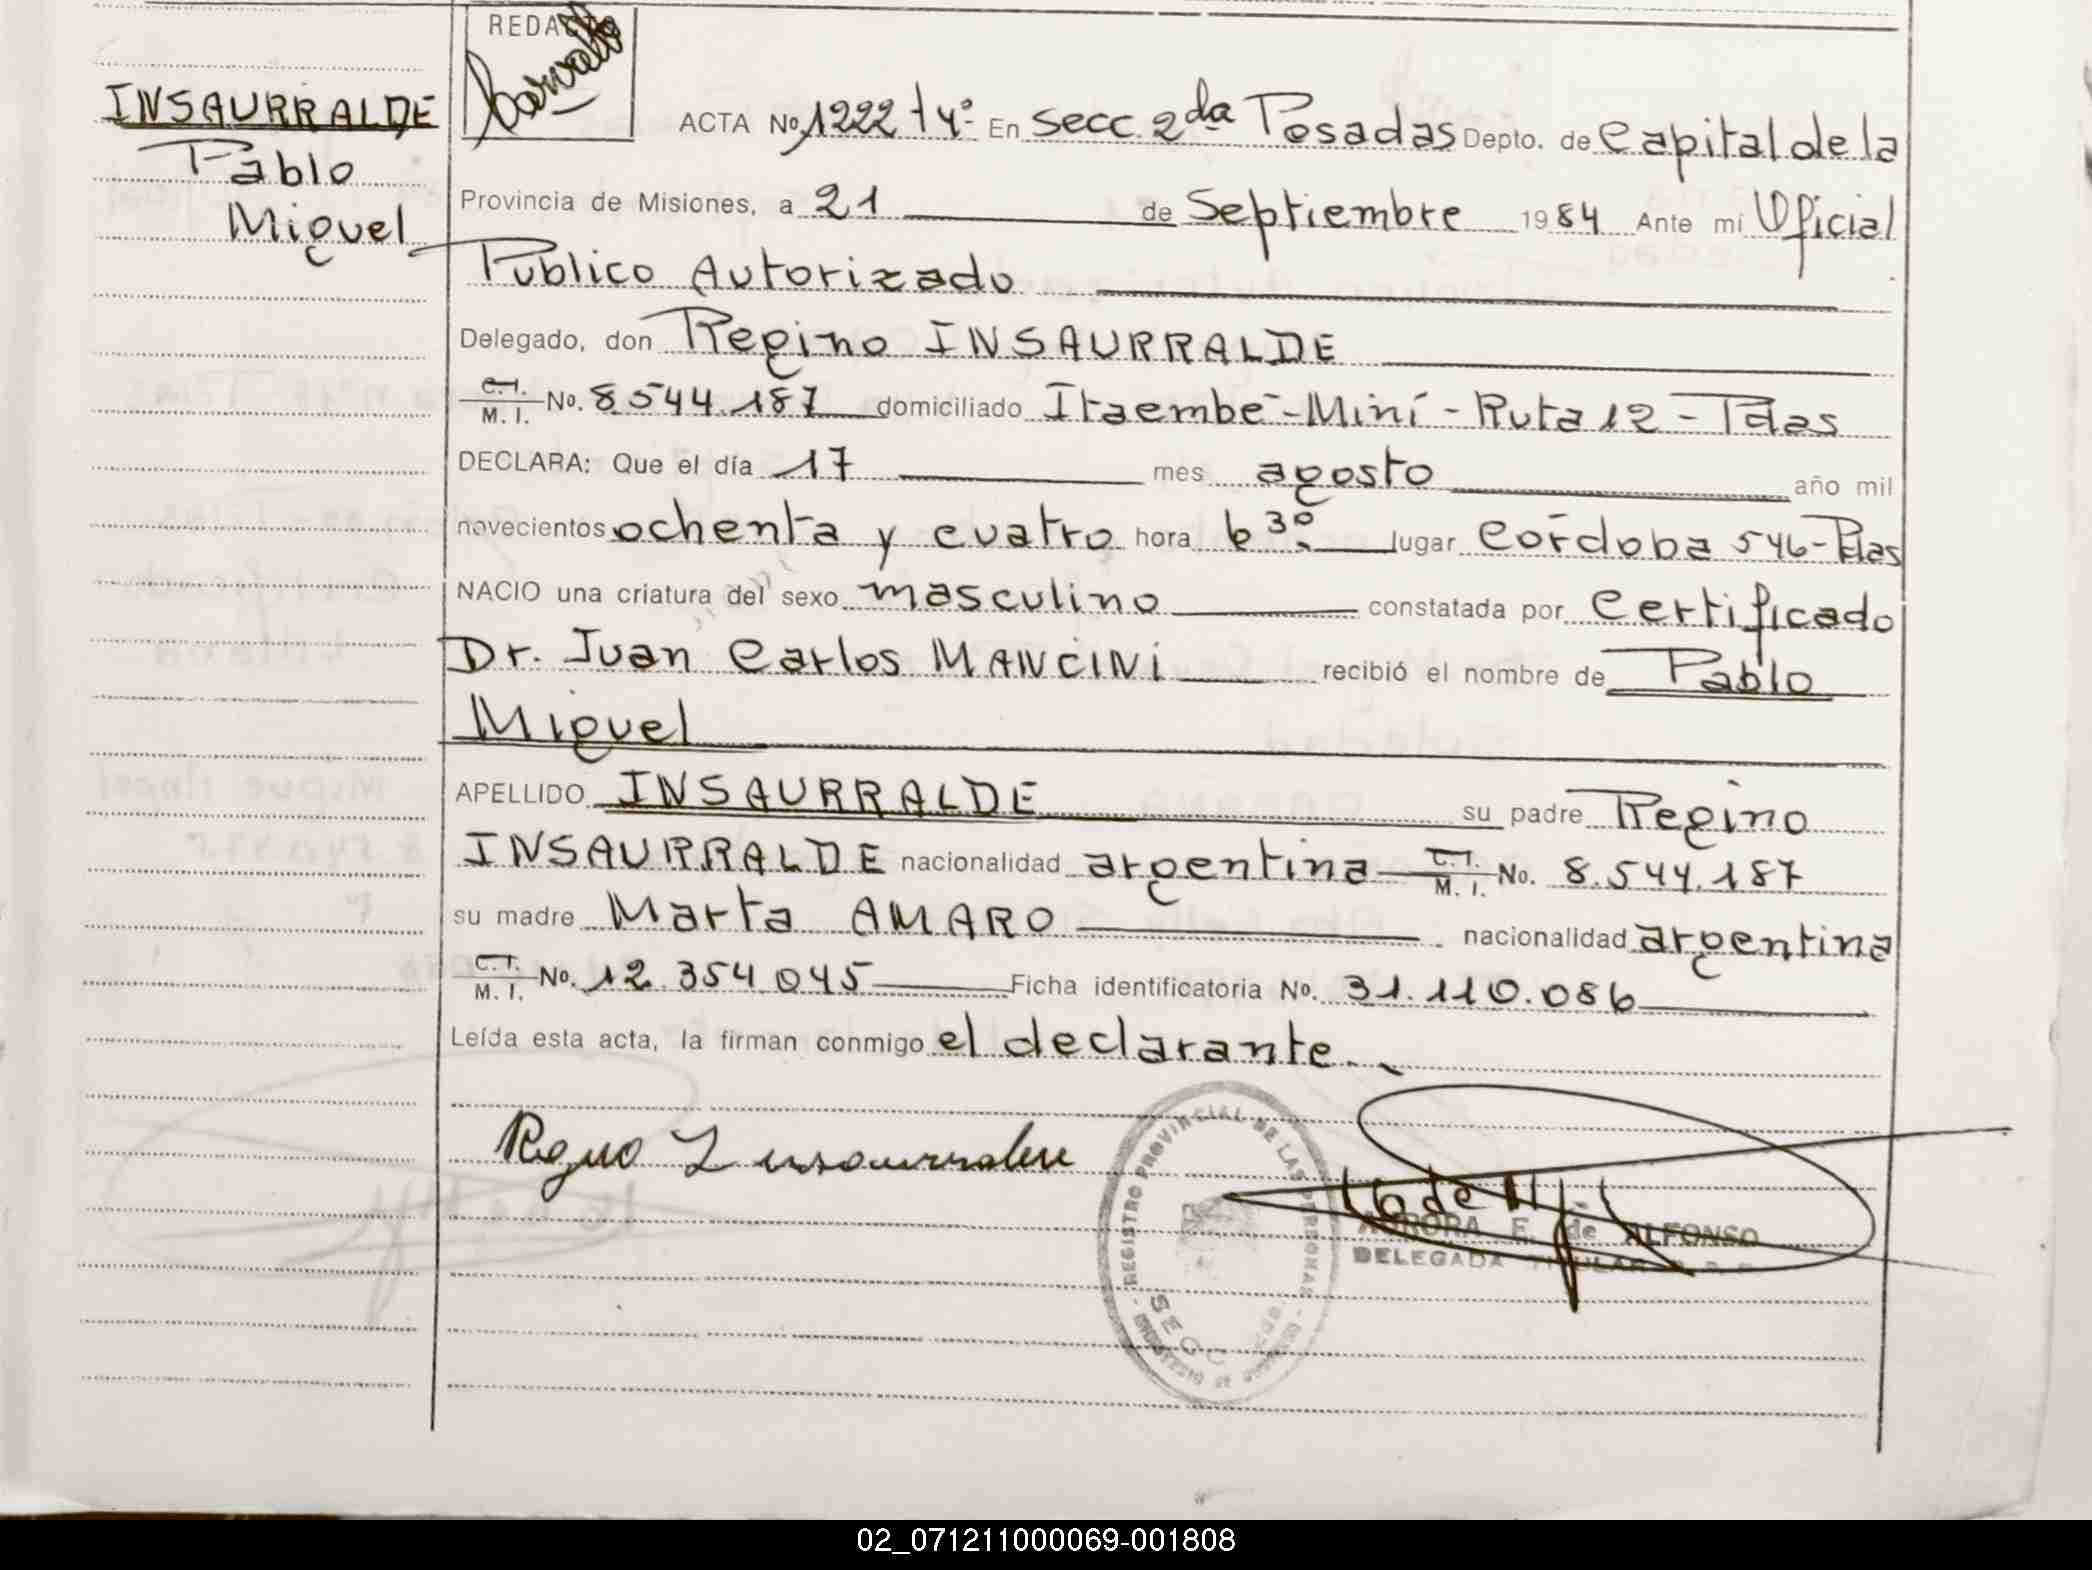 INSAURRALDE
Pablo
Miguel
REDACTO
ACTA No 1222 t4º En Secc 2da Posadas Depto. de Capital de la
Provincia de Misiones, a 21 de Septiembre 1984 Ante mí Oficial
Público Autorizado
Delegado, don Regino INSAURRALDE
C.I. M.I. No. 8.544.187 domiciliado Itaembé-Miní-Ruta 12-Pdas
DECLARA: Que el día 17 mes agosto año mil
novecientos ochenta y cuatro hora 6 30 lugar Córdoba 546-Pdas
NACIO una criatura del sexo masculino constatada por Certificado
Dr. Juan Carlos MANCINI recibió el nombre de Pablo
Miguel
APELLIDO INSAURRALDE su padre Regino
INSAURRALDE nacionalidad argentina C.I. M.I. No. 8.544.187
su madre Marta AMARO nacionalidad argentina
C.I. M.I. No. 12.354.045 Ficha identificatoria No. 31.110.086
Leída esta acta, la firman conmigo el declarante.
Regino Insaurralde
REGISTRO PROVINCIAL DE LAS PERSONAS
SECC
AURORA E. de ALFONSO
DELEGADA TITULAR
02_071211000069-001808